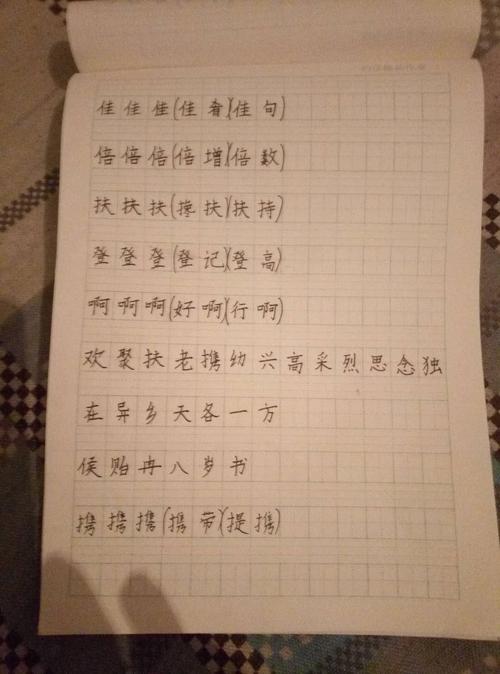 佳佳佳(佳肴)(佳句)
倍倍倍(倍增)(倍数)
扶扶扶(搀扶)(扶持)
登登登(登记)(登高)
啊啊啊(好啊)(行啊)
欢聚扶老携幼兴高采烈思念独
在异乡天各一方
侯贻冉八岁书
携携携(携带)(提携)